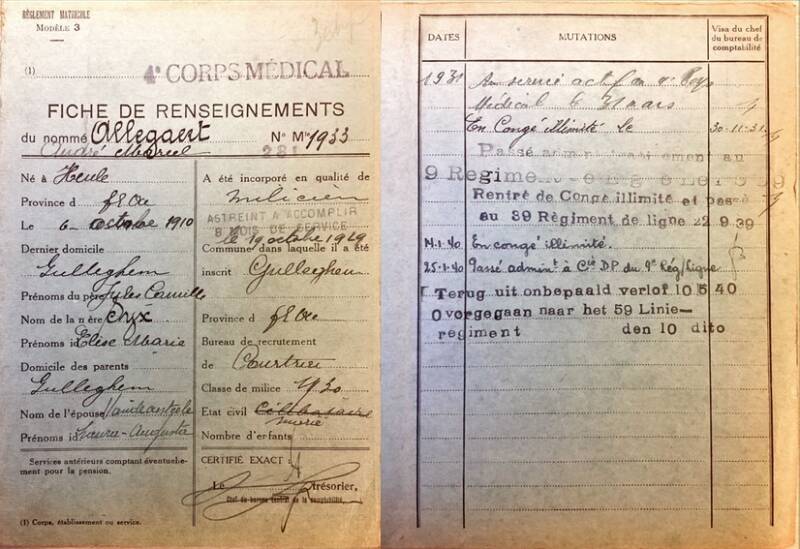 RÈGLEMENT MATRICULE
MODÈLE 3
(1)
4e CORPS MÉDICAL
FICHE DE RENSEIGNEMENTS
du nommé Alleggaert No Mle 1933
André Marcel 281
Né à Heule
Province d fl Occ
Le 6 octobre 1910
Dernier domicile
Gulleghem
Prénoms du père Jules Camille
Nom de la mère Dyx
Prénoms id Elise Marie
Domicile des parents
Gulleghem
Nom de l'épouse
Prénoms id Laura-Augusta
Services antérieurs comptant éventuellement pour la pension.
(1) Corps, établissement ou service.
A été incorporé en qualité de
milicien
ASTREINT A ACCOMPLIR
8 MOIS DE SERVICE
le 19 octobre 1929
Commune dans laquelle il a été
inscrit Gulleghem
Province d fl Occ
Bureau de recrutement
de Courtrai
Classe de milice 1930
Etat civil Célibataire
marié
Nombre d'enfants
CERTIFIÉ EXACT :
Le trésorier,
Chef du bureau central de la comptabilité,
DATES
MUTATIONS
Visa du chef
du bureau de
comptabilité
1931 Au service actif au 4e Corps
Médical le 31 mars
En Congé illimité le 30-11-31
Passé administrativement au
9 Régiment de Ligne
Rentré de Congé illimité et passé
au 39 Régiment de ligne 22.9.39
En congé illimité.
25-1-40 Passé admint à Cie DP du 9e Rég/Ligne
Terug uit onbepaald verlof 10 5 40
Overgegaan naar het 59 Linie-
regiment den 10 dito